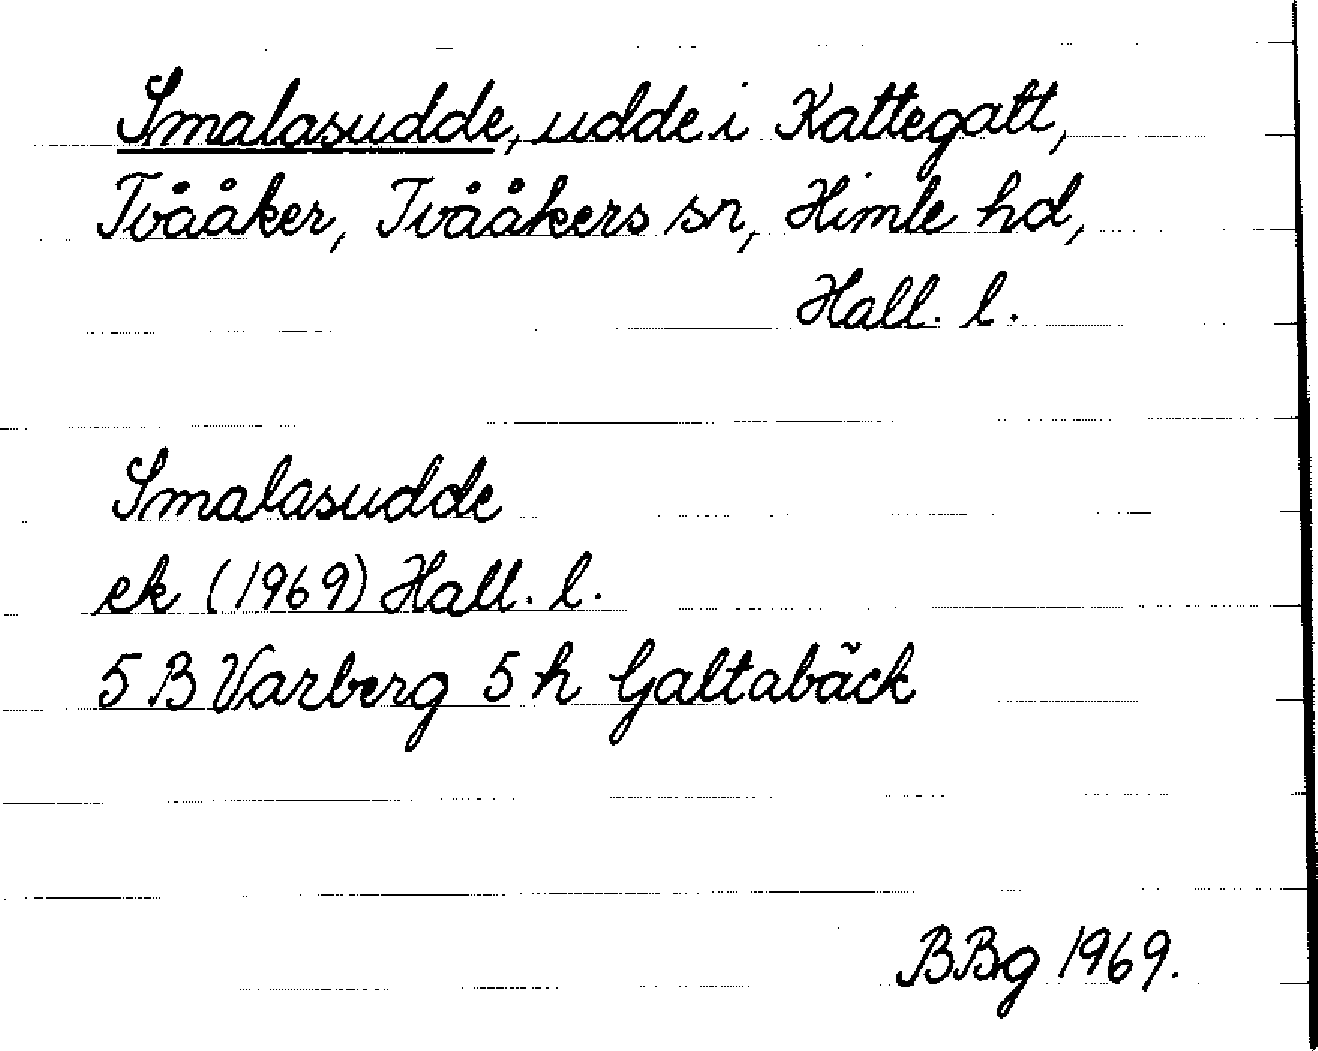 Smalasudde, udde i Kattegatt,
Tvååker, Tvååkers sn, Himle hd,
Hall. l.
Smalasudde
ek (1969) Hall. l.
5 B Varberg 5 h Galtabäck
BBg 1969.